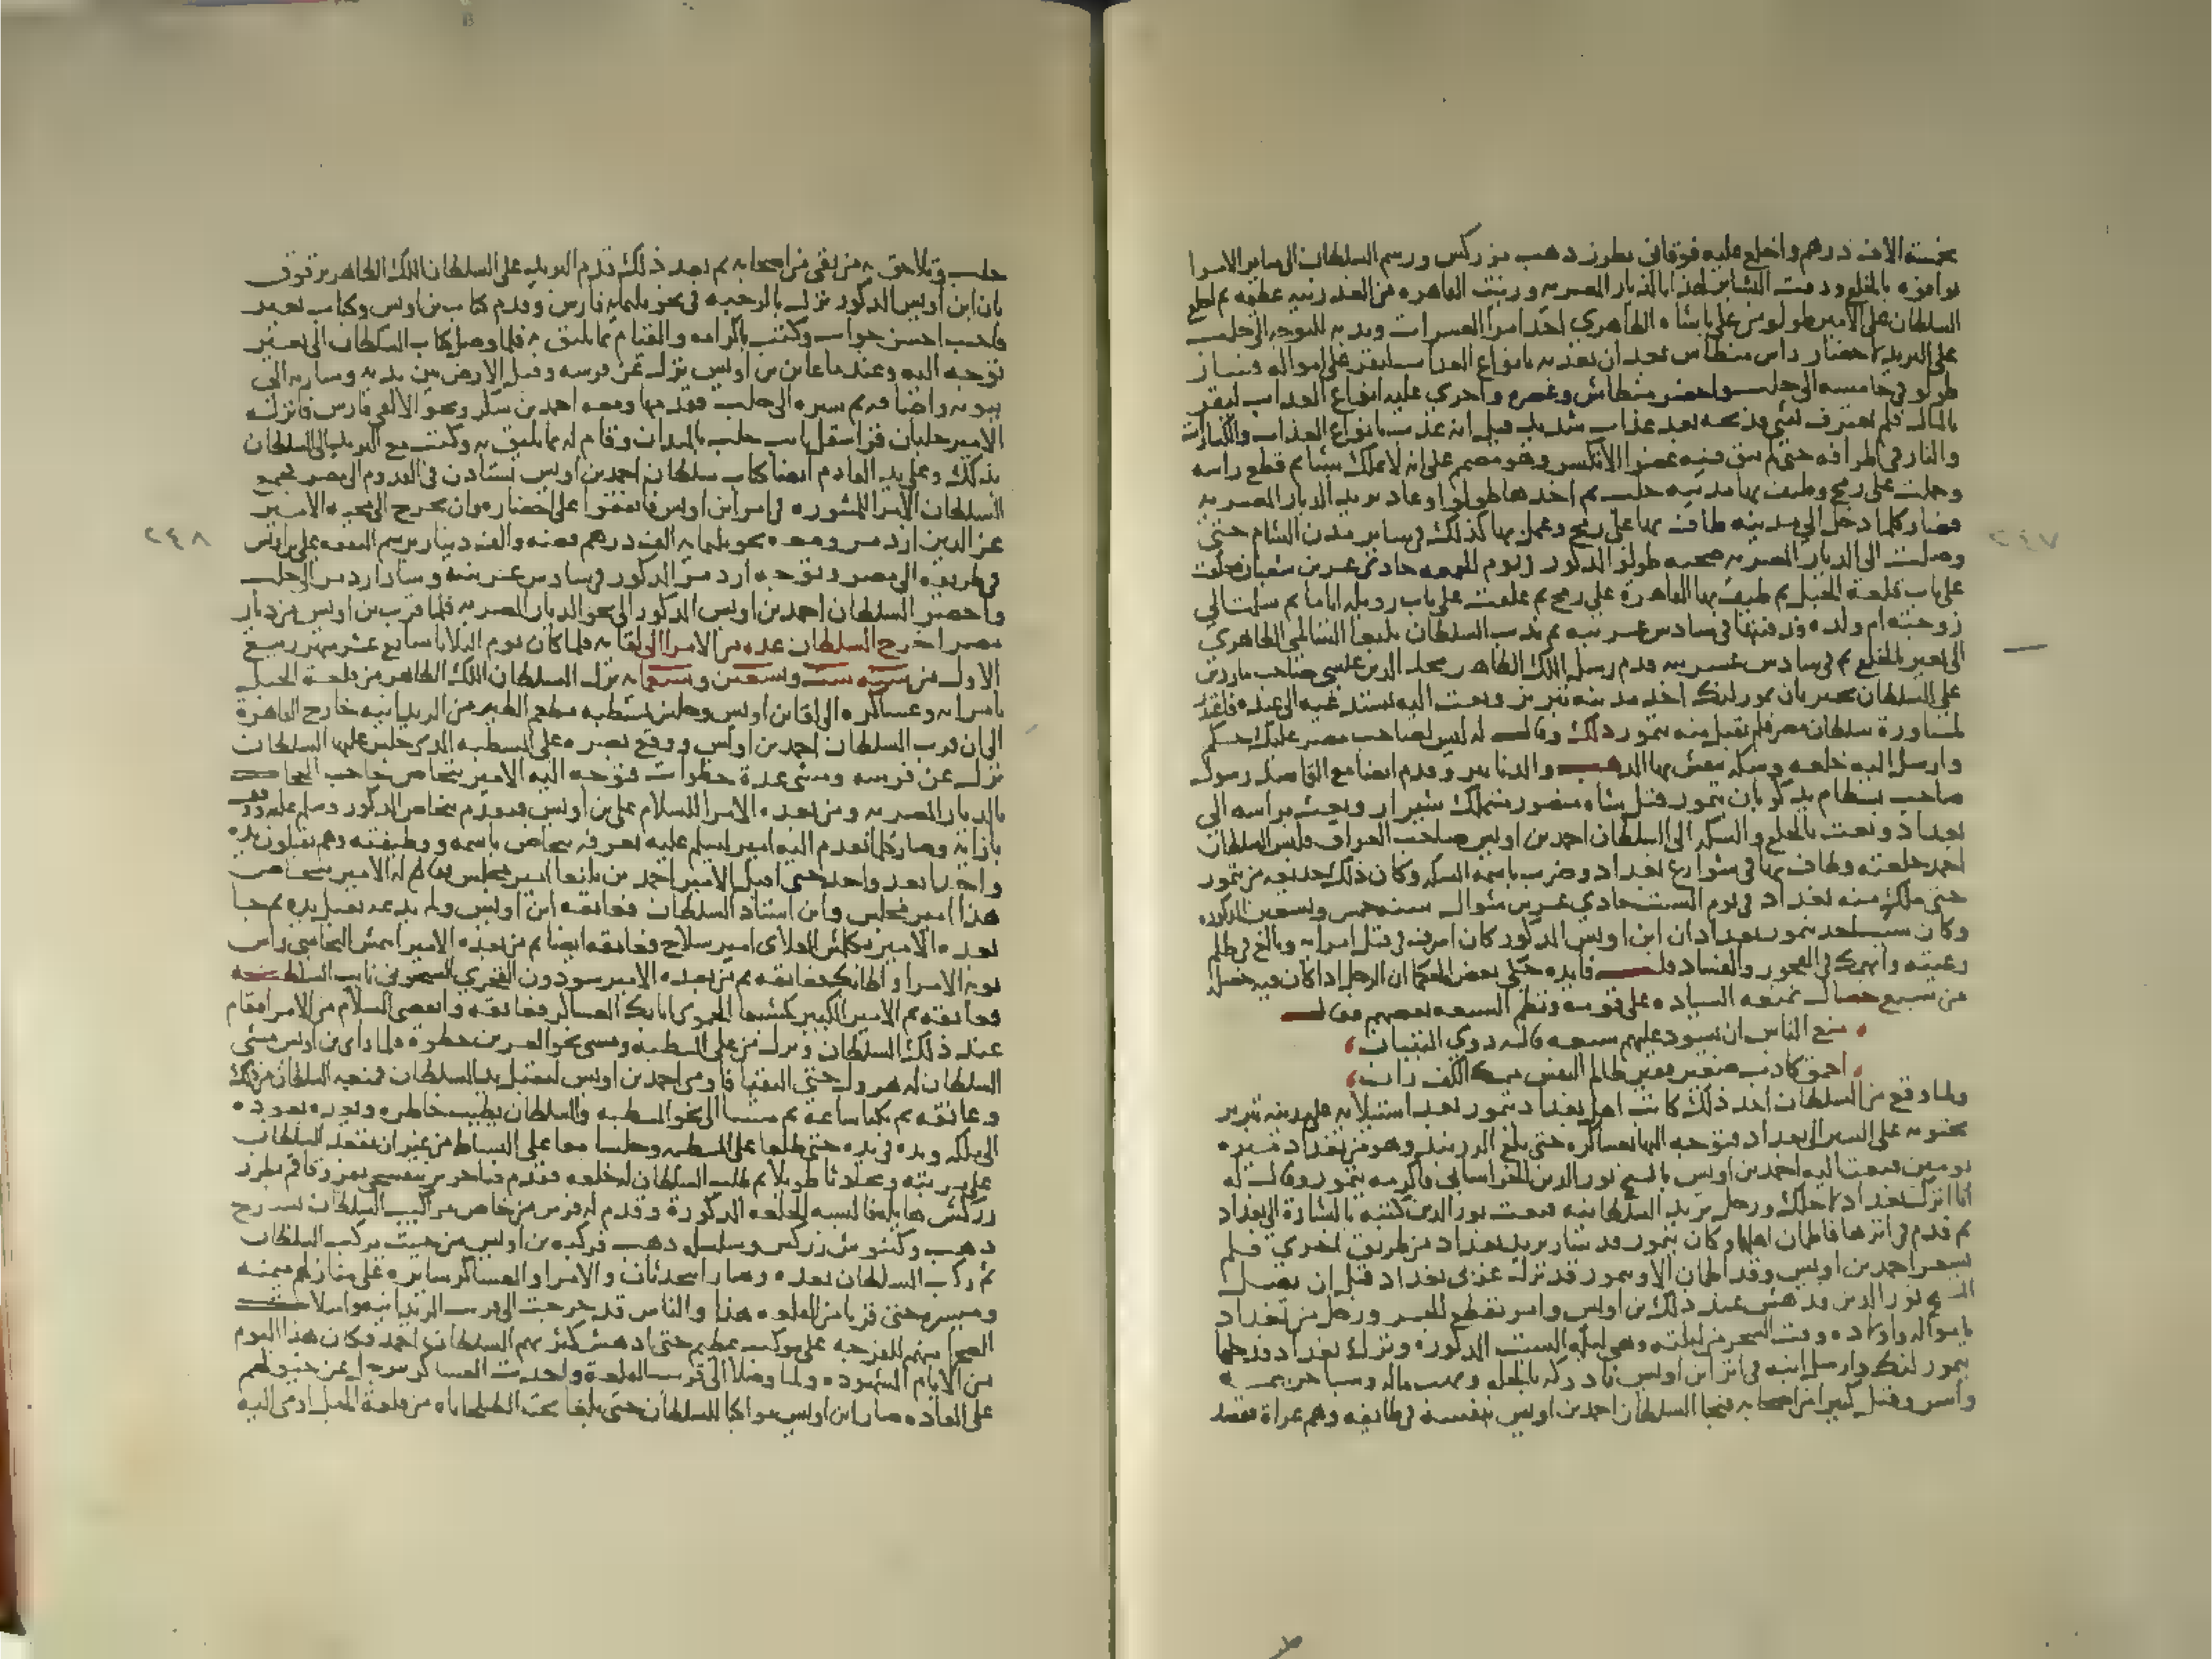 بخمسة الاف درهم واخلع عليه فوقاني بطرز ذهب مزركش ورسم السلطان الى ساير الامرا
بالخلع ودقت البشاير لهذا بالديار المصريه وزينت القاهره زينه عظيمه ثم اخلع
السلطان على الامير طولو من على باشاه الظاهري احد امرا العشرات وندبه للتوجه الى حلب
على البريد لاحضار راس منطاش بعد ان يعذبه بانواع العذاب ليقر على امواله فسار
طولو في خامسه الى حلب واحضر منطاش وعصره واجرى عليه انواع العذاب ليقر
بالمال فلم يعترف بشي فذبحه بعد عذاب شديد قيل انه عذب بانواع العذاب والكسارات
والنار في اطرافه حتى لم يبق فيه عضو الا انكسر وهو مصمم على انه لا يملك شيا ثم قطع راسه
وحملت على رمح وطيف بها مدينه حلب ثم اخذها طولوا وعاد يريد الديار المصريه
فصار كلما دخل الى مدينه طاف بها على رمح وعمل بها كذلك في ساير مدن الشام حتى
وصلت الى الديار المصريه صحبه طولو المذكور في يوم الجمعه حادي عشرين شعبان فعلقت
على باب قلعة الجبل ثم طيف بها القاهرة على رمح ثم علقت على باب زويله اياما ثم سلمت الى
زوجته ام ولده فدفنتها في سادس عشرينه ثم ندب السلطان يلبغا السالمي الظاهري
الى نعير بالخلع ثم في سادس عشرينه قدم رسل الملك الظاهر مجد الدين عيسى صاحب ماردين
على السلطان بخبر بان تمورلنك اخذ مدينه تبريز وبعث اليه يستدعيه الى عنده فاعتذر
لمشاورة سلطان مصر فلم يقبل منه تمور ذلك وقال له ليس لصاحب مصر عليك حكم
وارسل اليه خلعه وسكه ينقش بها الذهب والدنانير وقدم ايضا مع القاصد رسول
صاحب بسطام يذكر بان تمور قتل شاه منصور متملك شيراز وبعث براسه الى
بغداد وبعث بالخلع والسكه الى السلطان احمد بن اويس صاحب العراق فلبس السلطان
احمد خلعته وطاف بها في شوارع بغداد وضرب باسمه السكه وكان ذلك خديعه من تمور
حتى ملك منه بغداد في يوم السبت حادي عشرين شوال سنه خمس وتسعين المذكوره
وكان سبب اخذ تمور بغداد ان ابن اويس المذكور كان اسرف في قتل امرايه وبالغ في ظلم
رعيته وانهمك في الفجور والفساد قلت فايده حكى بعض الحكما ان الرجل اذا كان فيه خصله
من سبع خصال تمنعه السياده على قومه ونظم السبعه بعضهم فقال
منع الناس ان يسود عليهم سبعه قاله ذوي التبيان
احمق كاذب صغير فقير ظالم النفس ممسك الكف زان
ولما وقع من السلطان احمد ذلك كاتب اهل بغداد تمور بعد استيلايه على مدينه تبريز
يحثونه على المسير الى بغداد فتوجه اليها بعساكره حتى بلغ الدربند وهو من بغداد مسيره
يومين فبعث اليه احمد بن اويس بالشيخ نور الدين الخراساني فاكرمه تمور وقال له
انا اترك بغداد لاجلك ورحل يريد السلطانيه فبعث نور الدين كتبه بالبشارة الى بغداد
ثم قدم في اثرها فاطمان اهلها وكان تمور قد سار يريد بغداد من طريق اخرى فلم
يشعر احمد بن اويس وقد اطمان الا وتمور قد نزل غربي بغداد قبل ان يصل
الشيخ نور الدين فدهش عند ذلك بن اويس وامر بقطع الجسر ورحل من بغداد
بامواله واولاده وقت السحر من ليلته وهي ليله السبت المذكوره وترك بغداد فدخلها
تمورلنك وارسل ابنه في اثر ابن اويس فادركه بالحله ونهب ماله وسبا حريمه
واسر وقتل كثيرا من اصحابه فنجا السلطان احمد بن اويس بنفسه في طايفه وهم عراة فقصد
٧٤٦
حلب وتلاحق به من بقي من اصحابه ثم بعد ذلك قدم البريد على السلطان الملك الظاهر برقوق
بان ابن اويس المذكور نزل بالرحبه في نحو ثلثمايه فارس وقدم كتاب بن اويس وكتاب نعير
فاجيب احسن جواب وكتب باكرامه والقيام بما يليق به فلما وصل كتاب السلطان الى نعير
توجه اليه وعندما عاين بن اويس نزل عن فرسه وقبل الارض بين يديه وسار به الى
بيوته واضافه ثم سيره الى حلب فقدمها ومعه احمد بن شكر ونحو الالفي فارس فانزله
الامير جلبان قراسقل نايب حلب بالميدان وقام له بما يليق به وكتب مع البريد الى السلطان
بذلك وعلى يد القادم ايضا كتاب سلطان احمد بن اويس يستاذن في القدوم الى مصر فجمع
السلطان الامرا للمشوره في امر ابن اويس فاتفقوا على احضاره وان يخرج الى مجيه الامير
عز الدين ازدمر ومعه نحو ثلثمايه الف درهم فضه والف دينار برسم النفقه على بن اويس
في طريقه الى مصر وتوجه ازدمر المذكور في سادس عشرينه وسار ازدمر الى حلب
واحضر السلطان احمد بن اويس المذكور الى نحو الديار المصريه فلما قرب بن اويس من ديار
مصر اخرج السلطان عده من الامرا الى لقايه فلما كان يوم الثلاثا سابع عشر شهر ربيع
الاول من سنه ست وتسعين وسبعمايه نزل السلطان الملك الظاهر من قلعة الجبل
بامرايه وعساكره الى لقا بن اويس وجلس بمسطبه مطعم الطير من الريدانيه خارج القاهرة
الى ان قرب السلطان احمد بن اويس ووقع بصره على المسطبه الذي جلس عليها السلطان
نزل عن فرسه ومشى عدة خطوات فتوجه اليه الامير بتخاص حاجب الحجاب
بالديار المصريه ومن بعده الامرا للسلام على بن اويس فتقدم بتخاص المذكور وسلم عليه ووقف
بازايه وصار كلما تقدم اليه امير ليسلم عليه يعرفه بتخاص باسمه ووظيفته وهم يقبلون يده
واحدا بعد واحد حتى اقبل الامير احمد بن يلبغا امير مجلس فقال له الامير بتخاص
هذا امير مجلس وابن استاد السلطان فعانقه ابن اويس ولم يدعه يقبل يده ثم جا
بعده الامير بكلمش العلاي امير سلاح فعانقه ايضا ثم من بعده الامير ايتمش البجاسي راس
نوبة الامرا واطابك فعانقه ثم من بعده الامير سودون الفخري الشيخوني نايب السلطنه
فعانقه ثم الامير الكبير كمشبغا الحموي اتابك العساكر فعانقه وانقضى السلام من الامرا فقام
عند ذلك السلطان ونزل من على المسطبه ومشى نحو العشرين خطوة فلما راى بن اويس مشي
السلطان له هرول حتى التقيا فاومى احمد بن اويس ليقبل يد السلطان فمنعه السلطان من ذلك
وعانقه ثم بكيا ساعة ثم مشيا الى نحو المسطبه والسلطان يطيب خاطره ويعده بعوده
الى ملكه ويده في يده حتى طلعا على المسطبه وجلسا معا على البساط من غير ان يقعد السلطان
على مرتبته وتحادثا طويلا ثم طلب السلطان له خلعه فقدم قبا حرير بنفسجي بفرو قاقم بطرز
زركش هايله فالبسه الخلعه المذكورة وقدم له فرس من خاص مراكيب السلطان بسرج
ذهب وكنبوش زركش وسلسله ذهب فركبه بن اويس من حيث يركب السلطان
ثم ركب السلطان بعده وسارا يتحدثان والامرا والعساكر سايره على منازلهم ميمنه
وميسره حتى قربا من القلعه هذا والناس قد خرجت الى قرب الريدانيه وامتلات
الصحرا منهم للفرجه على موكب عظيم حتى ادهش كثرتهم السلطان احمد فكان هذا اليوم
من الايام المشهوده ولما وصلا الى قرب القلعة واخذت العساكر تترجل عن خيولهم
على العاده صار ابن اويس مواكبا للسلطان حتى بلغا تحت الطبلخاناه من قلعة الجبل اومى اليه
٨٤٢